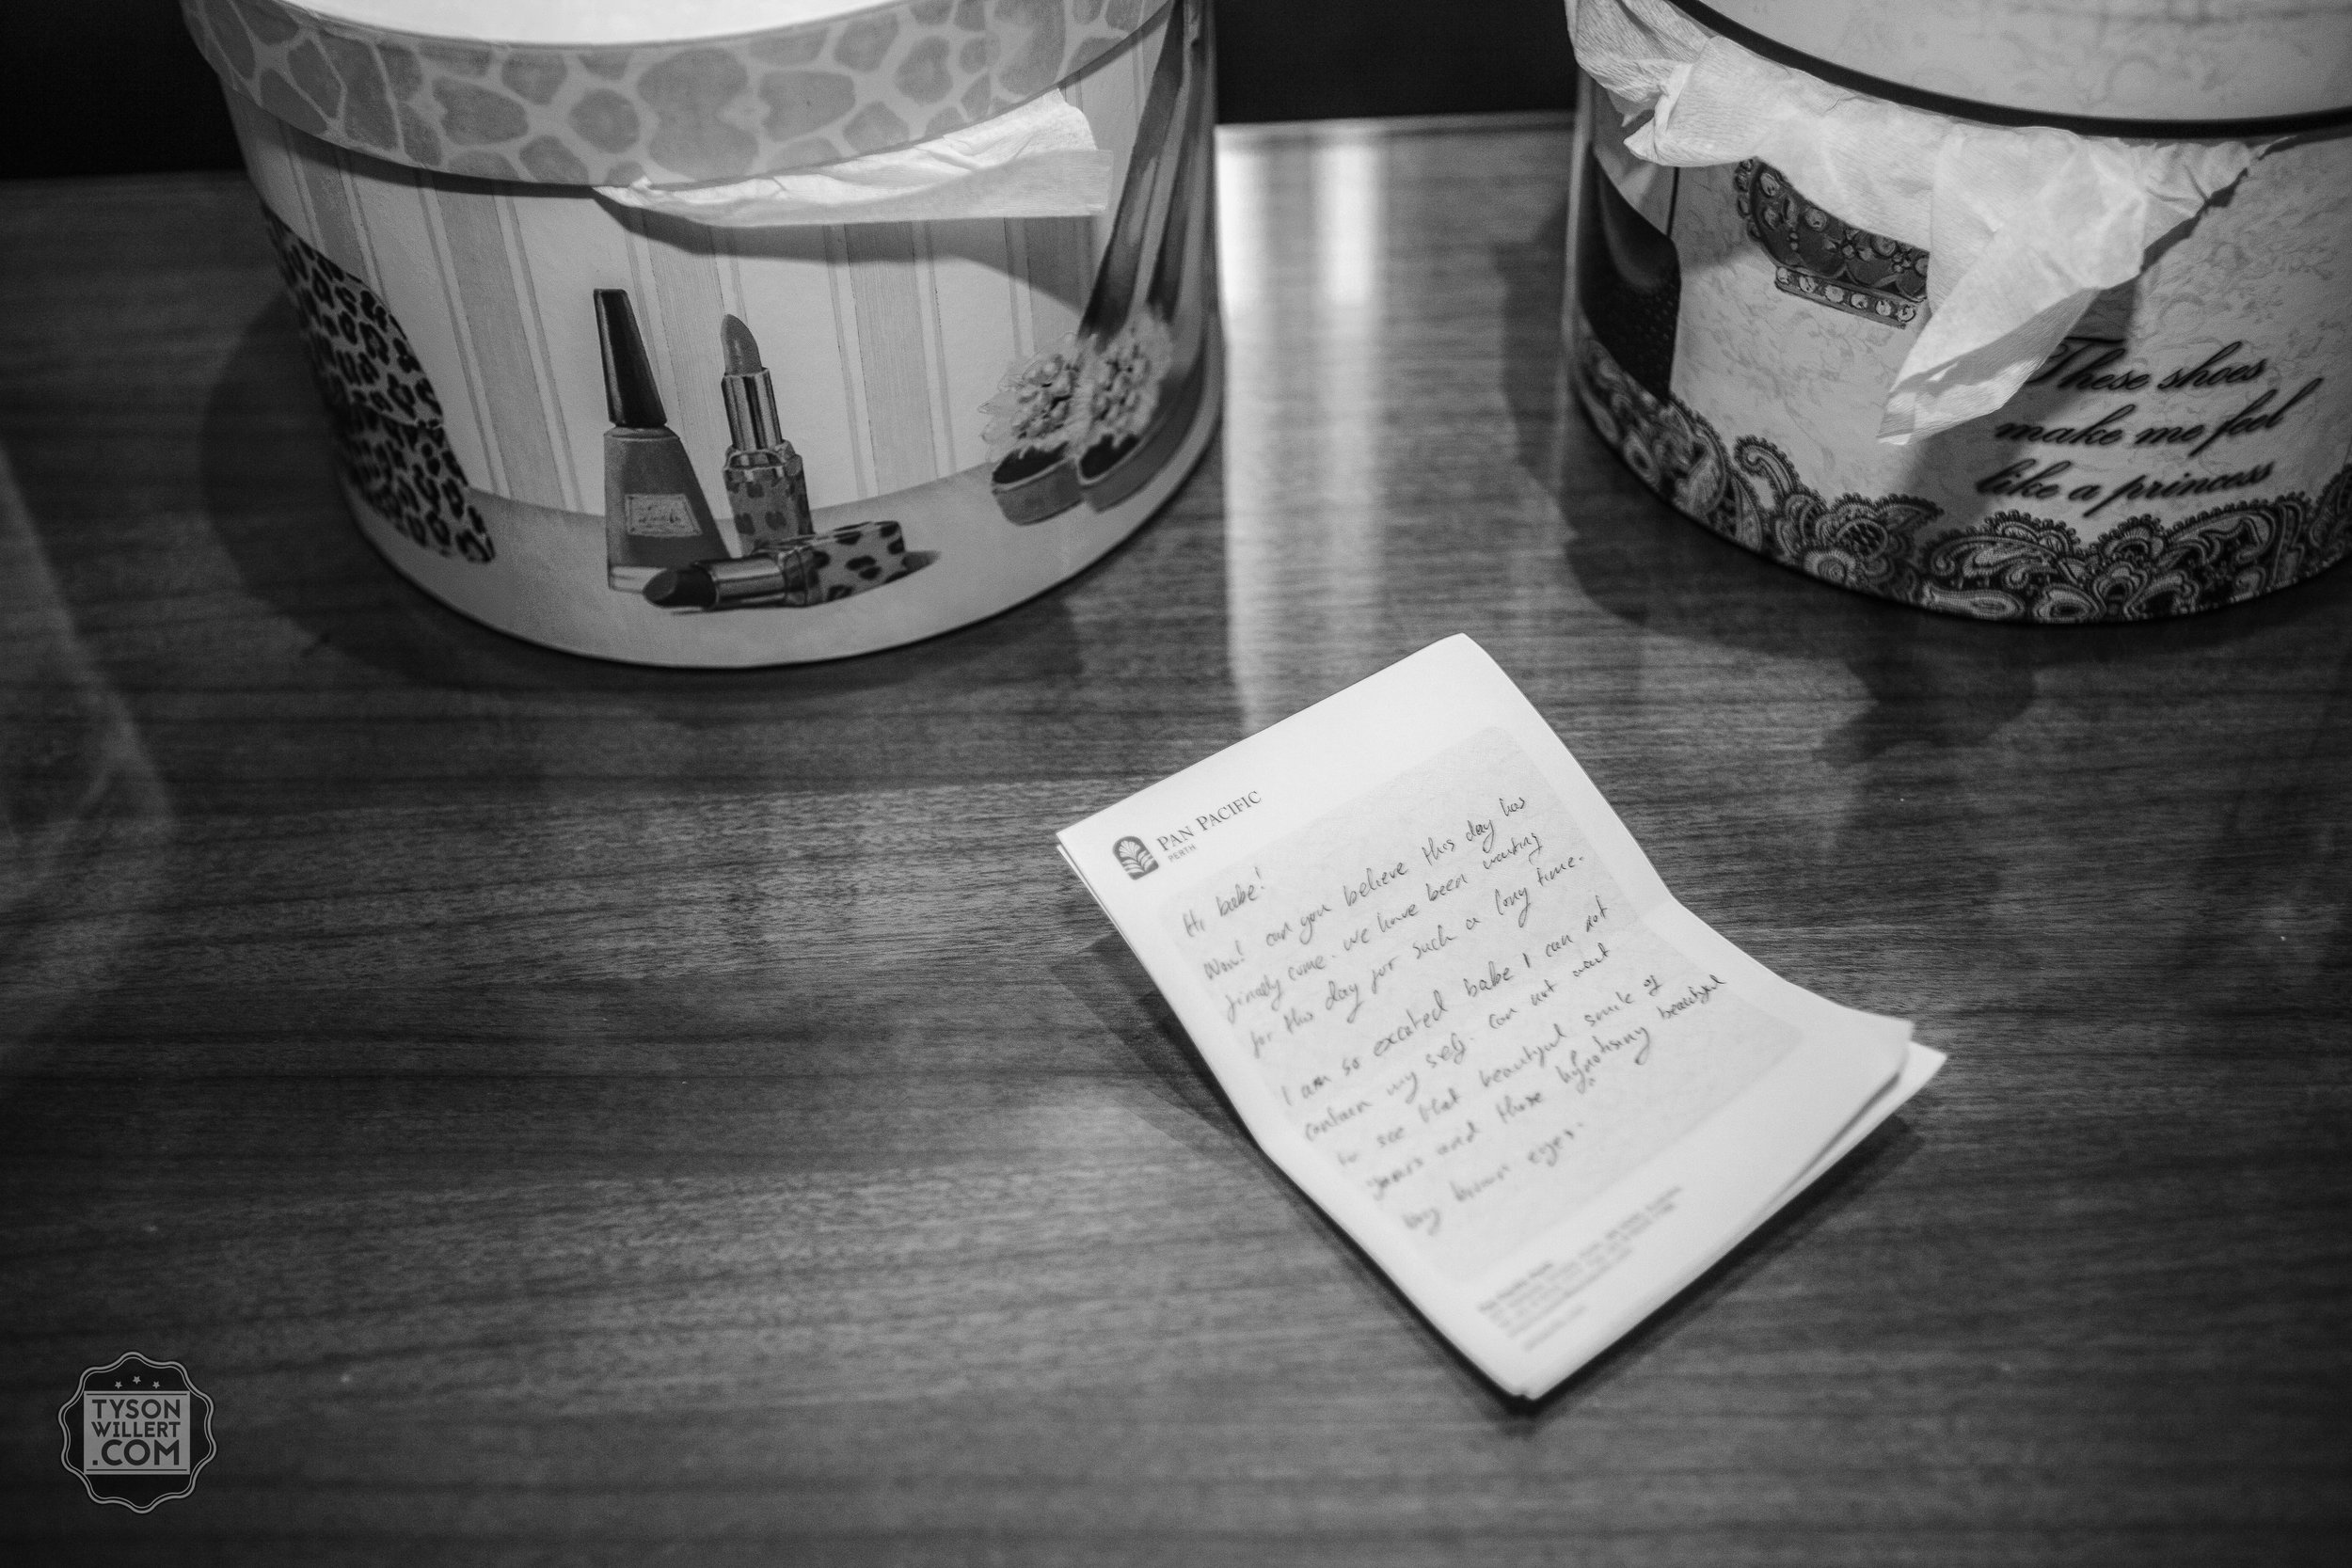 These shoes
make me feel
like a princess
PAN PACIFIC
PERTH
Hi babe!
Wow! can you believe this day has
finally come. we have been waiting
for this day for such a long time.
I am so excated babe I can not
contain my self. can not wait
to see that beautiful smile of
yours and those hypnotising beautiful
big brown eyes.
TYSON
WILLERT
.COM